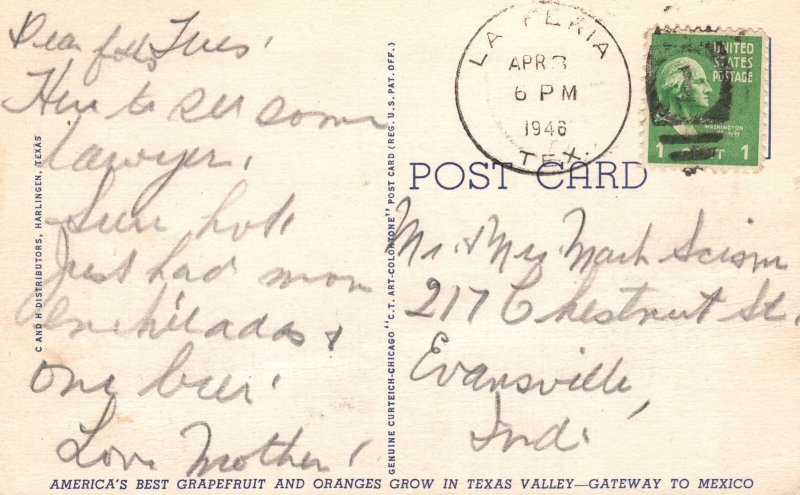 Dear folks Tues.
Here to see some
Lawyer.
Sure hot.
Just had more
enchiladas &
one beer!
Love Mother!
C AND H DISTRIBUTORS, HARLINGEN, TEXAS
GENUINE CURTEICH-CHICAGO "C.T. ART-COLORTONE" POST CARD (REG. U.S. PAT. OFF.)
LA FERIA
APR 3
6 PM
1946
TEX.
UNITED
STATES
POSTAGE
WASHINGTON
1 1
POST CARD
Mr. & Mrs Mark Scism
217 Chestnut St.
Evansville,
Ind.
AMERICA'S BEST GRAPEFRUIT AND ORANGES GROW IN TEXAS VALLEY—GATEWAY TO MEXICO